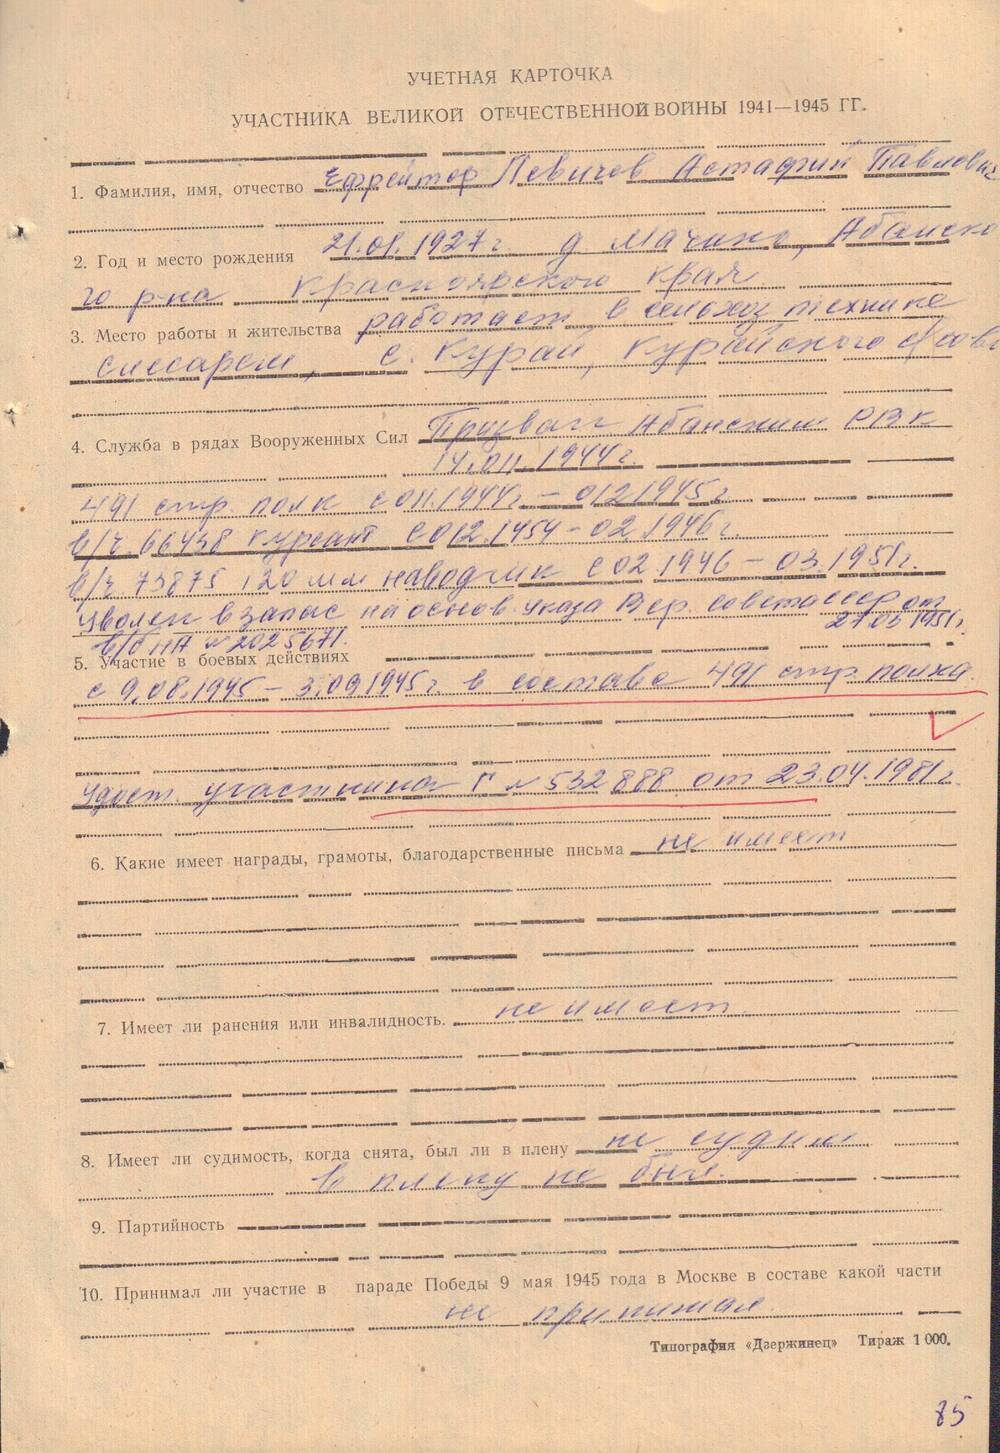 УЧЕТНАЯ КАРТОЧКА
УЧАСТНИКА ВЕЛИКОЙ ОТЕЧЕСТВЕННОЙ ВОЙНЫ 1941—1945 ГГ.
1. Фамилия, имя, отчество Ефрейтор Певичев Астафий Павлович
2. Год и место рождения 21.01.1927г. д. Мачино, Абанско
го р-на Красноярского края
3. Место работы и жительства работает в сельхозтехнике
слесарем, с. Курай, Курайского с/сове
4. Служба в рядах Вооруженных Сил Призван Абанским РВК
14.011.1944г.
491 стр. полк с 011.1944г. – 012 1945г.
в/ч. 66438 курсант с 012.1454 – 02.1946г.
в/ч. 73875 120 мм наводчик с 02.1946 – 03.1951г.
Уволен в запас на основ. указа Вер. совета ссср от
27 02 1951г.
в/б НА № 2025671.
5. Участие в боевых действиях
с 9.08.1945 – 3.09.1945г. в составе 491 стр. полка.
Удост. участника Г № 532888 от 23.04.1981г.
6. Какие имеет награды, грамоты, благодарственные письма не имеет
7. Имеет ли ранения или инвалидность. не имеет
8. Имеет ли судимость, когда снята, был ли в плену не судим
в плену не был.
9. Партийность
10. Принимал ли участие в параде Победы 9 мая 1945 года в Москве в составе какой части
не принимал
Типография «Дзержинец» Тираж 1 000.
85